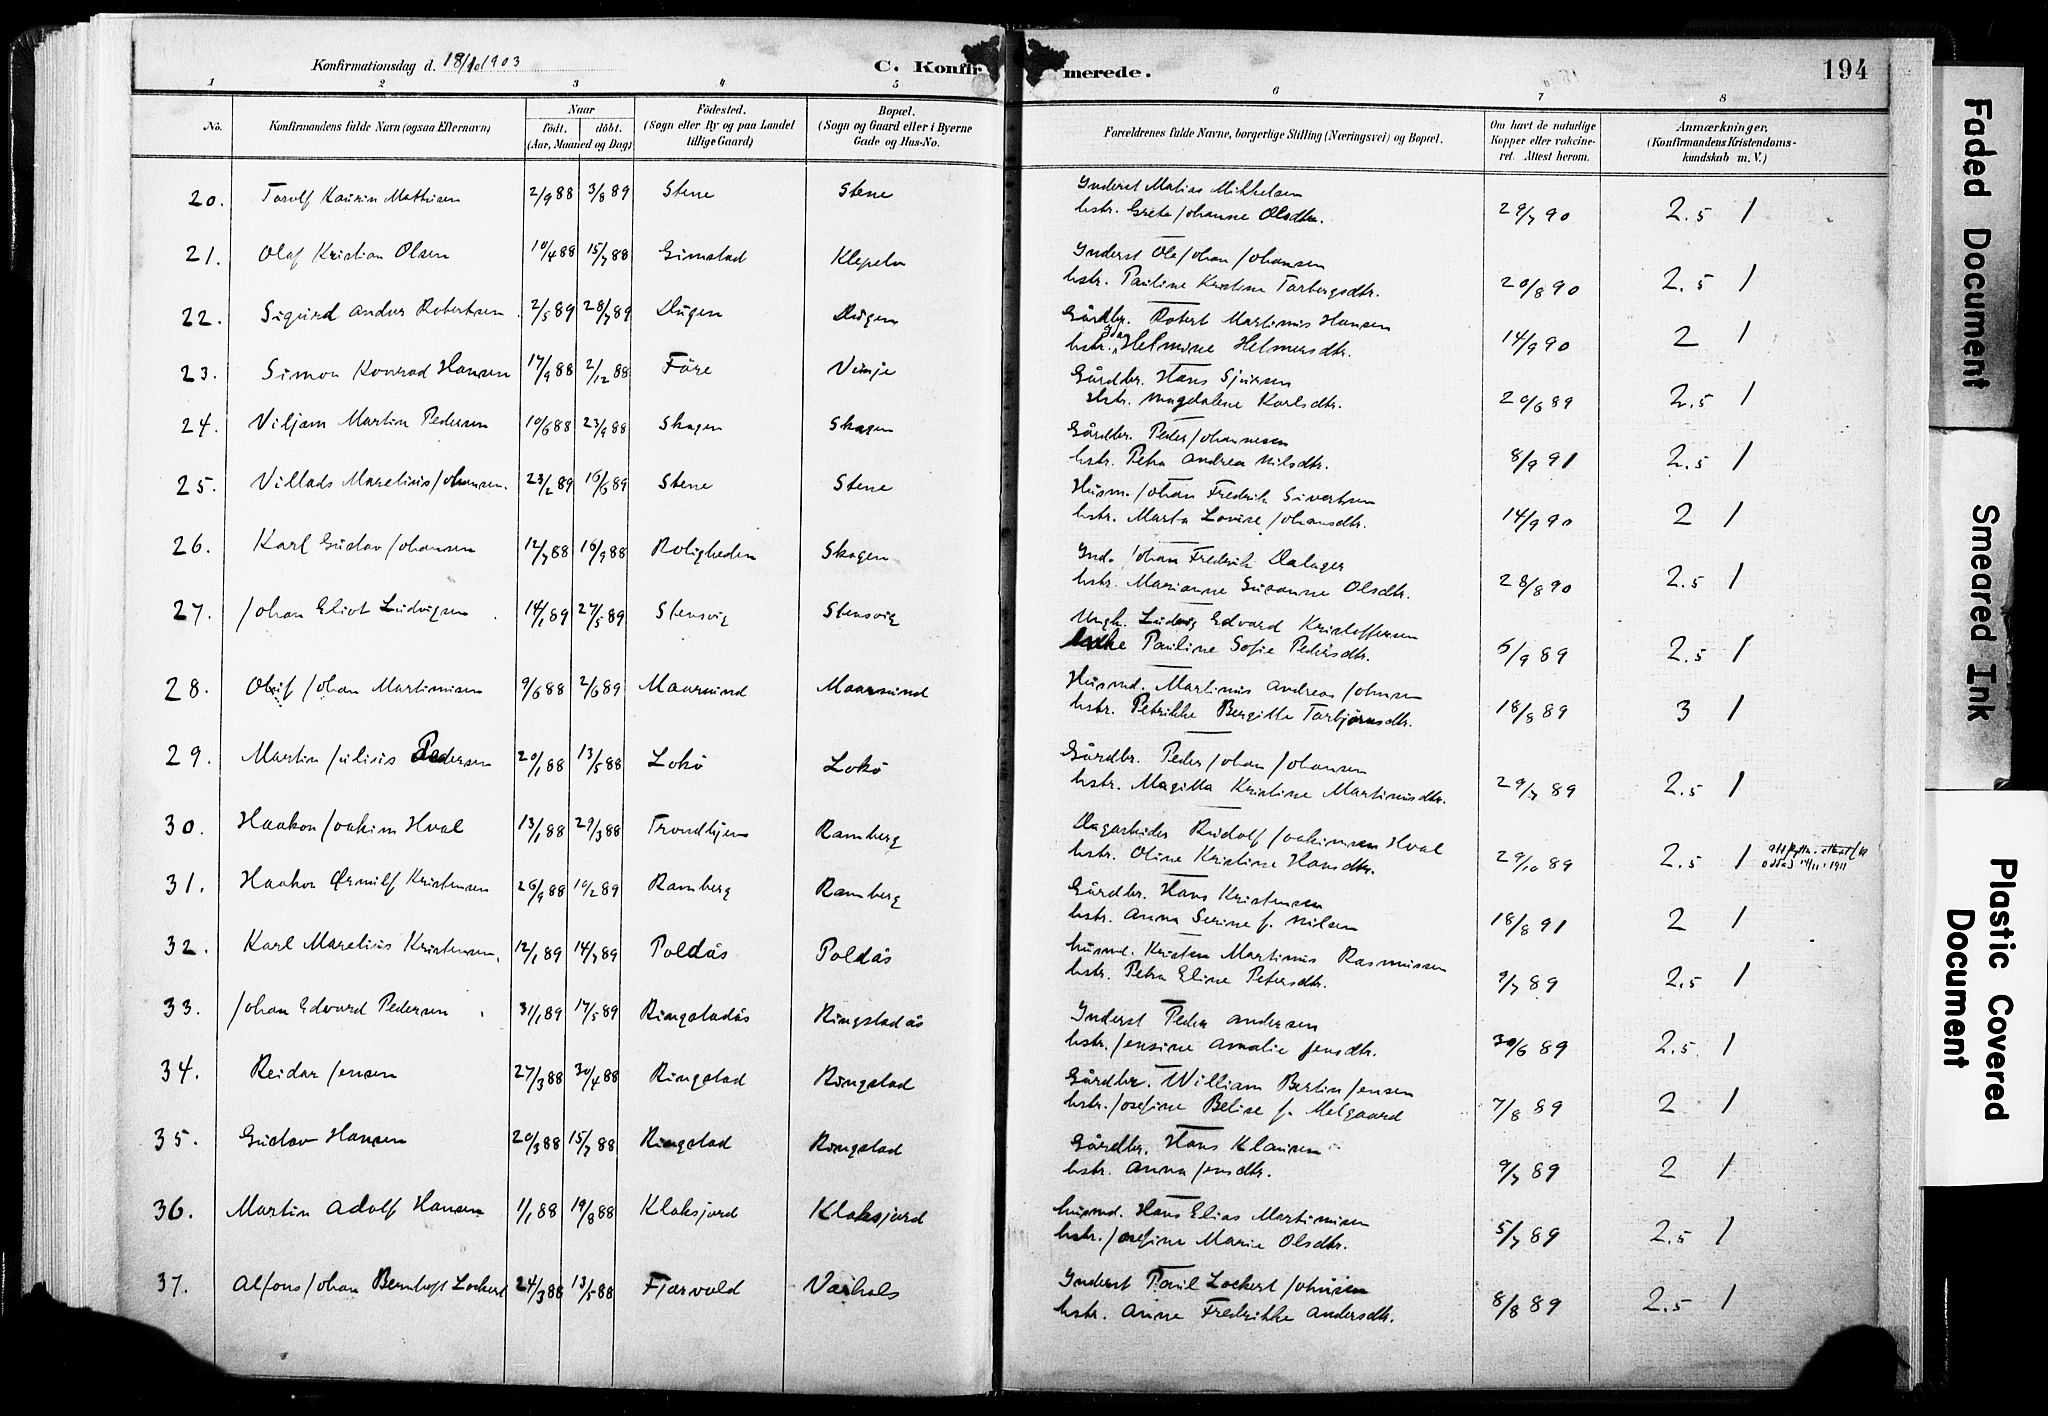 Konfirmationsdag d. 18/10 1903
C. Konfirmerede.
194
1 2 3 4 5 6 7 8
No. Konfirmandens fulde Navn (ogsaa Efternavn) Naar født. døbt. (Aar, Maaned og Dag) Fødested. (Sogn eller By og paa Landet tillige Gaard) Bopæl. (Sogn og Gaard eller i Byerne Gade og Hus-No. Forældrenes fulde Navne, borgerlige Stilling (Næringsvei) og Bopæl. Om havt de naturlige Kopper eller vakcineret. Attest herom. Anmærkninger. (Konfirmandens Kristendomskundskab m. V.)
20. Torolf Kaurin Mathisen 2/9 88 3/8 89 Stene Stene Inderst Matias Mikkelsen
hstr. Grete Johanne Olsdtr. 29/7 90 2.5 1
21. Olaf Kristian Olsen 10/4 88 15/7 88 Gimstad Klepelv Inderst Ole Johan Johansen
hstr. Pauline Kristine Torbergsdtr. 20/8 90 2.5 1
22. Sigurd Andor Robertsen 2/5 89 28/7 89 Gårdbr. Robert Martinus Hansen
hstr. Helmine Helmersdtr. 14/9 90 2 1
23. Simon Konrad Hansen 17/9 88 2/12 88 Føre Vinje Gårdbr. Hans Sjursen
Hstr. Magdalene Karlsdtr. 20/6 89 2.5 1
24. Viljam Martin Pedersen 10/6 88 23/9 88 Skagen Skagen Gårdbr. Peder Johannesen
hstr. Petra Andrea Nilsdtr. 8/9 91 2.5 1
25. Villads Marelius Johansen. 23/2 89 16/6 89 Stene Stene Husm. Johan Fredrik Sivertsen
hstr. Marta Lovise Johansdtr. 14/9 90 2 1
26. Karl Gustav Johansen 12/7 88 16/9 88 Roligheden Skagen Ind. Johan Fredrik Dalager
hstr. Marianne Susanne Olsdtr. 28/8 90 2.5 1
27. Johan Eliot Ludvigsen 14/1 89 27/5 89 Stensvig Stensvig Ungk. Ludvig Edvard Kristoffersen
Enke Pauline Sofie Pedersdtr. 6/9 89 2.5 1
28. Johan Martinisen 9/6 88 2/6 89 Maarsund Maarsund Husmd. Martinus Andreas Johnsen
hstr. Petrikke Bergitte Torbjørnsdtr. 18/8 89 3 1
29. Martin Julius Pedersen 20/1 88 13/5 88 Lokø Lokø Gårdbr. Peder Johan Johansen
hstr. Magitta Kristine Martinusdtr. 29/7 89 2.5 1
30. Haakon Joakim Hval 13/1 88 29/3 88 Trondhjem Ramberg Dagarbeider Rudolf Joakimsen Hval
hstr. Oline Kristine Hansdtr. 29/10 89 2.5 1
31. Haakon Ørnulf Kristensen 26/9 88 10/2 89 Ramberg Ramberg Gårdbr. Hans Kristensen
hstr. Anna Serine f. Nilsen 18/8 91 2 1
32. Karl Marelius Kristensen. 12/1 89 14/7 89 Poldås Poldås husmd. Kristen Martinus Rasmussen
hstr. Petra Eline Petersdtr. 9/7 89 2.5 1
33. Johan Edvard Pedersen 31/1 89 17/5 89 Ringstadås Ringstadås Inderst Peder Andersen
hstr. Jensine Amalie Jensdtr. 30/6 89 2.5. 1
34. Reidar Jensen 27/3 88 30/4 88 Ringstad Ringstad Gårdbr. William Bertin Jensen
hstr. Josefine Belise f. Melgaard 7/8 89 2 1
35. Gustav Hansen 20/3 88 15/7 88 Ringstad Ringstad Gårdbr. Hans Klausen
hstr. Anna Jensdtr. 9/7 89 2 1
36. Martin Adolf Hansen 1/1 88 19/8 88 Klaksjord Klaksjord husmd. Hans Elias Martinisen
hstr. Josefine Marie Olsdtr. 5/7 89 2.5 1
37. Alfons Johan Bernhoft Lockert 24/3 88 13/5 88 Fjærvold Varhols Inderst Paul Lockert Johnsen
hstr. Anne Fredrikke Andersdtr. 8/8 89 2.5 1
Faded Document
Smeared Ink
Plastic Covered Document